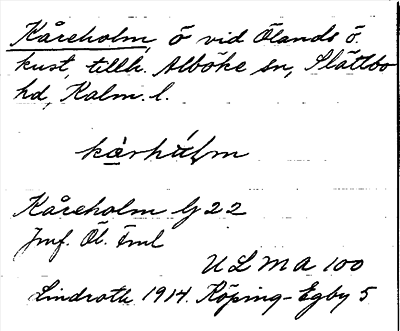 Kåreholm, ö vid Ölands ö.
kust, tillh. Alböke sn, Slättbo
hd, Kalm. l.
kàrhúlm
Kåreholm G 22
Jmf. Öl. Fml
ULMA 100
Lindroth 1914. Köping-Egby 5